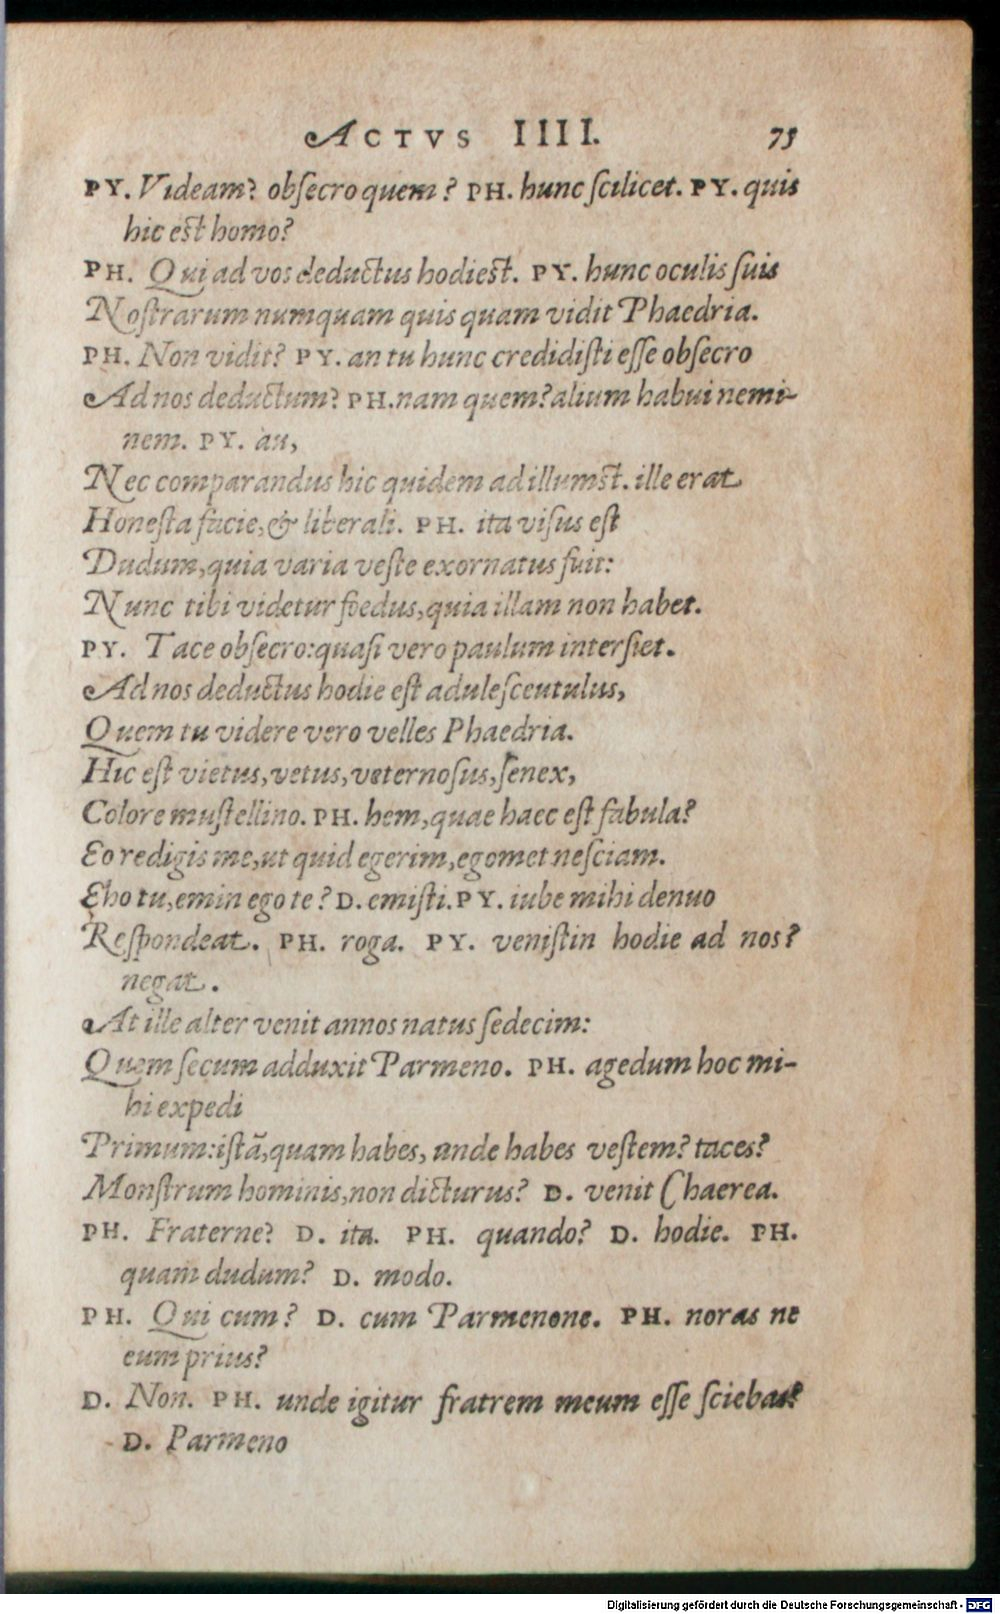 ACTVS IIII. 75
PY. Videam? obsecro quem? PH. hunc scilicet. PY. quis
hic est homo?
PH. Qui ad vos deductus hodiest. PY. hunc oculis suis
Nostrarum numquam quis quam vidit Phaedria.
PH. Non vidit? PY. an tu hunc credidisti esse obsecro
Ad nos deductum? PH. nam quem? alium habui nemi-
nem. PY. àu,
Nec comparandus hic quidem ad illumst. ille erat
Honesta facie, & liberali. PH. ita visus est
Dudum, quia varia veste exornatus fuit:
Nunc tibi videtur foedus, quia illam non habet.
PY. Tace obsecro: quasi vero paulum intersiet.
Ad nos deductus hodie est adulescentulus,
Quem tu videre vero velles Phaedria.
Hic est vietus, vetus, veternosus, senex,
Colore mustellino. PH. hem, quae haec est fabula?
Eo redigis me, ut quid egerim, egomet nesciam.
Eho tu, emin ego te? D. emisti. PY. iube mihi denuo
Respondeat. PH. roga. PY. venistin hodie ad nos?
negat.
At ille alter venit annos natus sedecim:
Quem secum adduxit Parmeno. PH. agedum hoc mi-
hi expedi
Primum: istā, quam habes, unde habes vestem? taces?
Monstrum hominis, non dicturus? D. venit Chaerea.
PH. Fraterne? D. ita. PH. quando? D. hodie. PH.
quam dudum? D. modo.
PH. Qui cum? D. cum Parmenone. PH. noras ne
eum prius?
D. Non. PH. unde igitur fratrem meum esse sciebas?
D. Parmeno
Digitalisierung gefördert durch die Deutsche Forschungsgemeinschaft - DFG